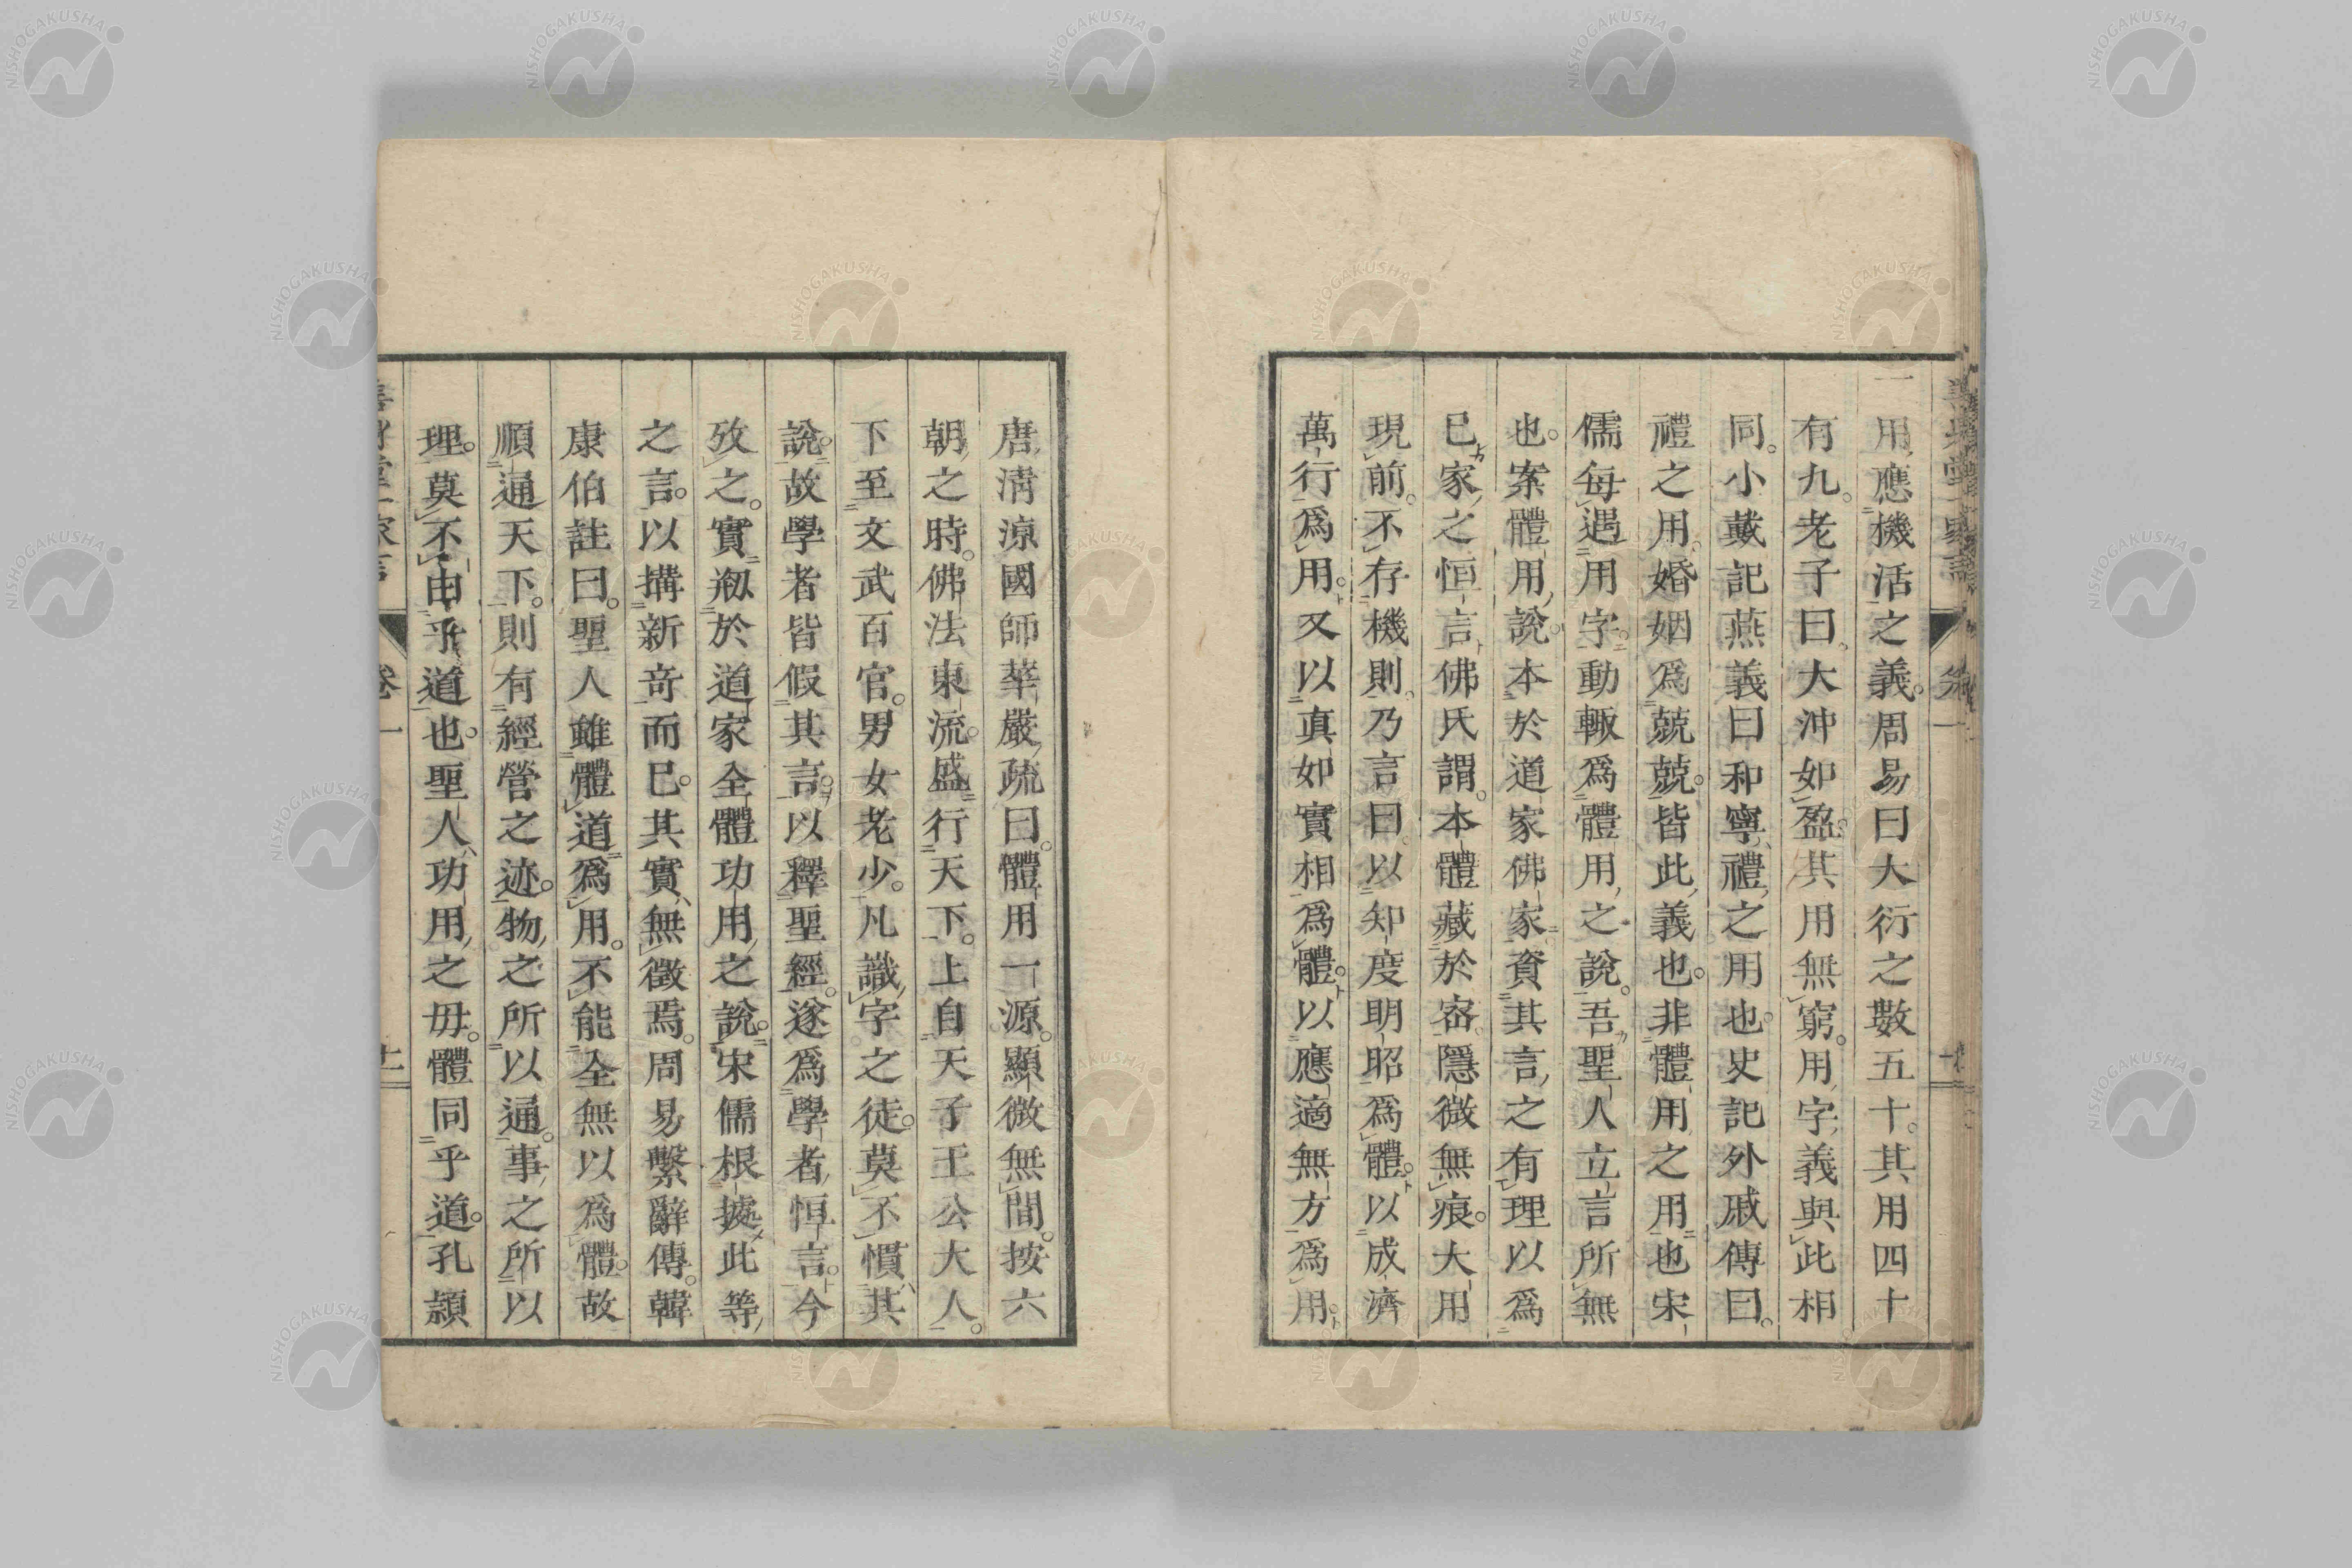 一用應機活之義。周易曰大衍之數五十。其用四十
有九。老子曰。大沖如盈。其用無窮。用字義與此相
同。小戴記燕義曰和寧禮之用也。史記外戚傳曰。
禮之用。婚姻爲兢兢。皆此義也。非體用之用也宋
儒每遇用字。動輙爲體用之說。吾聖人立言所無
也。案體用說。本於道家佛家資其言之有理以爲
已家之恒言佛氏謂。本體藏於密。隱微無痕。大用
現前。不存機則。乃言曰。以知度明昭爲體。以成濟
萬行爲用。又以眞如實相爲體。以應適無方爲用。
唐淸涼國師華嚴疏曰。體用一源。顯微無間。按六
朝之時。佛法東流。盛行天下。上自天子王公大人。
下至文武百官。男女老少。凡識字之徒。莫不慣其
說。故學者皆假其言。以釋聖經。遂爲學者恒言。今
攷之。實剏於道家全體功用之說。宋儒根據此等
之言。以搆新奇而已。其實無徵焉。周易繫辭傳。韓
康伯註曰。聖人雖體道爲用。不能全無以爲體。故
順通天下。則有經營之迹。物之所以通。事之所以
理。莫不由乎道也。聖人功用之母。體同乎道。孔頴
卷一
十一
NISHOGAKUSHA